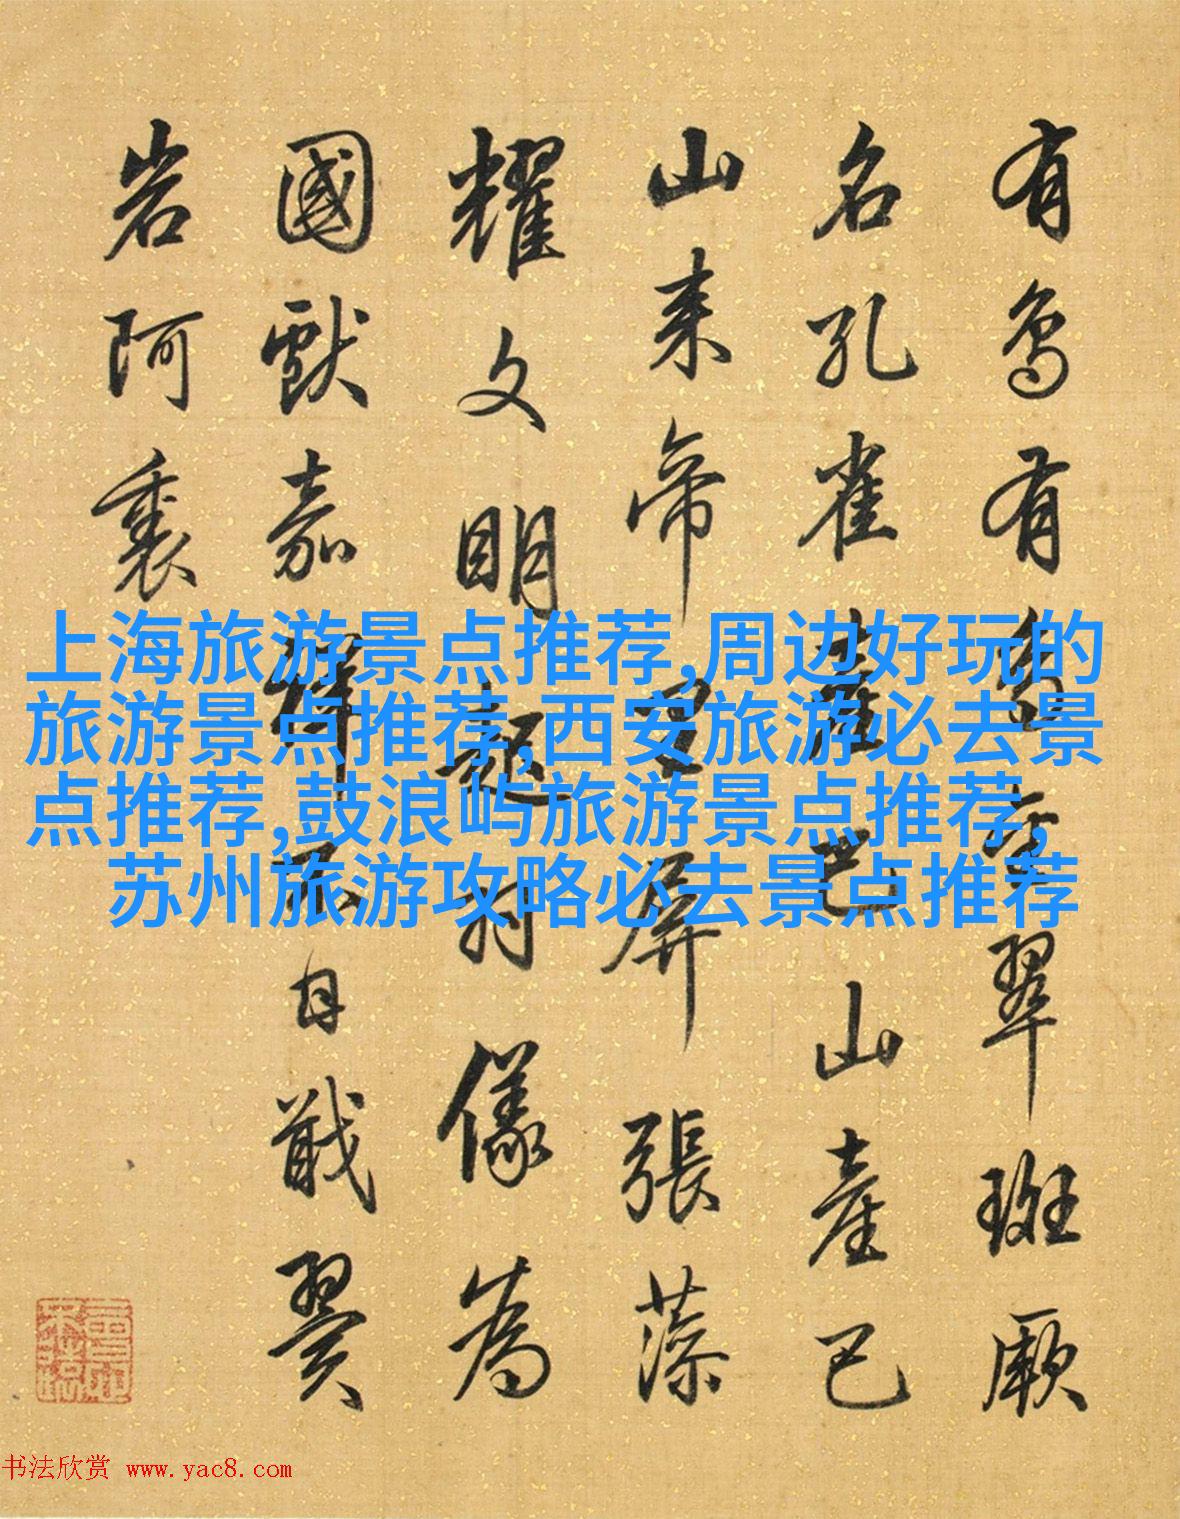 有鳥有鳥金翠斑厥
名孔雀產巴山產巴
山来帝里屏張藻
耀文明起對儀為
國獻嘉祥不日戢翼
岩阿裏
上海旅游景点推荐,周边好玩的
旅游景点推荐,西安旅游必去景
点推荐,鼓浪屿旅游景点推荐,
苏州旅游攻略必去景点推荐
书法欣赏 www.yac8.com